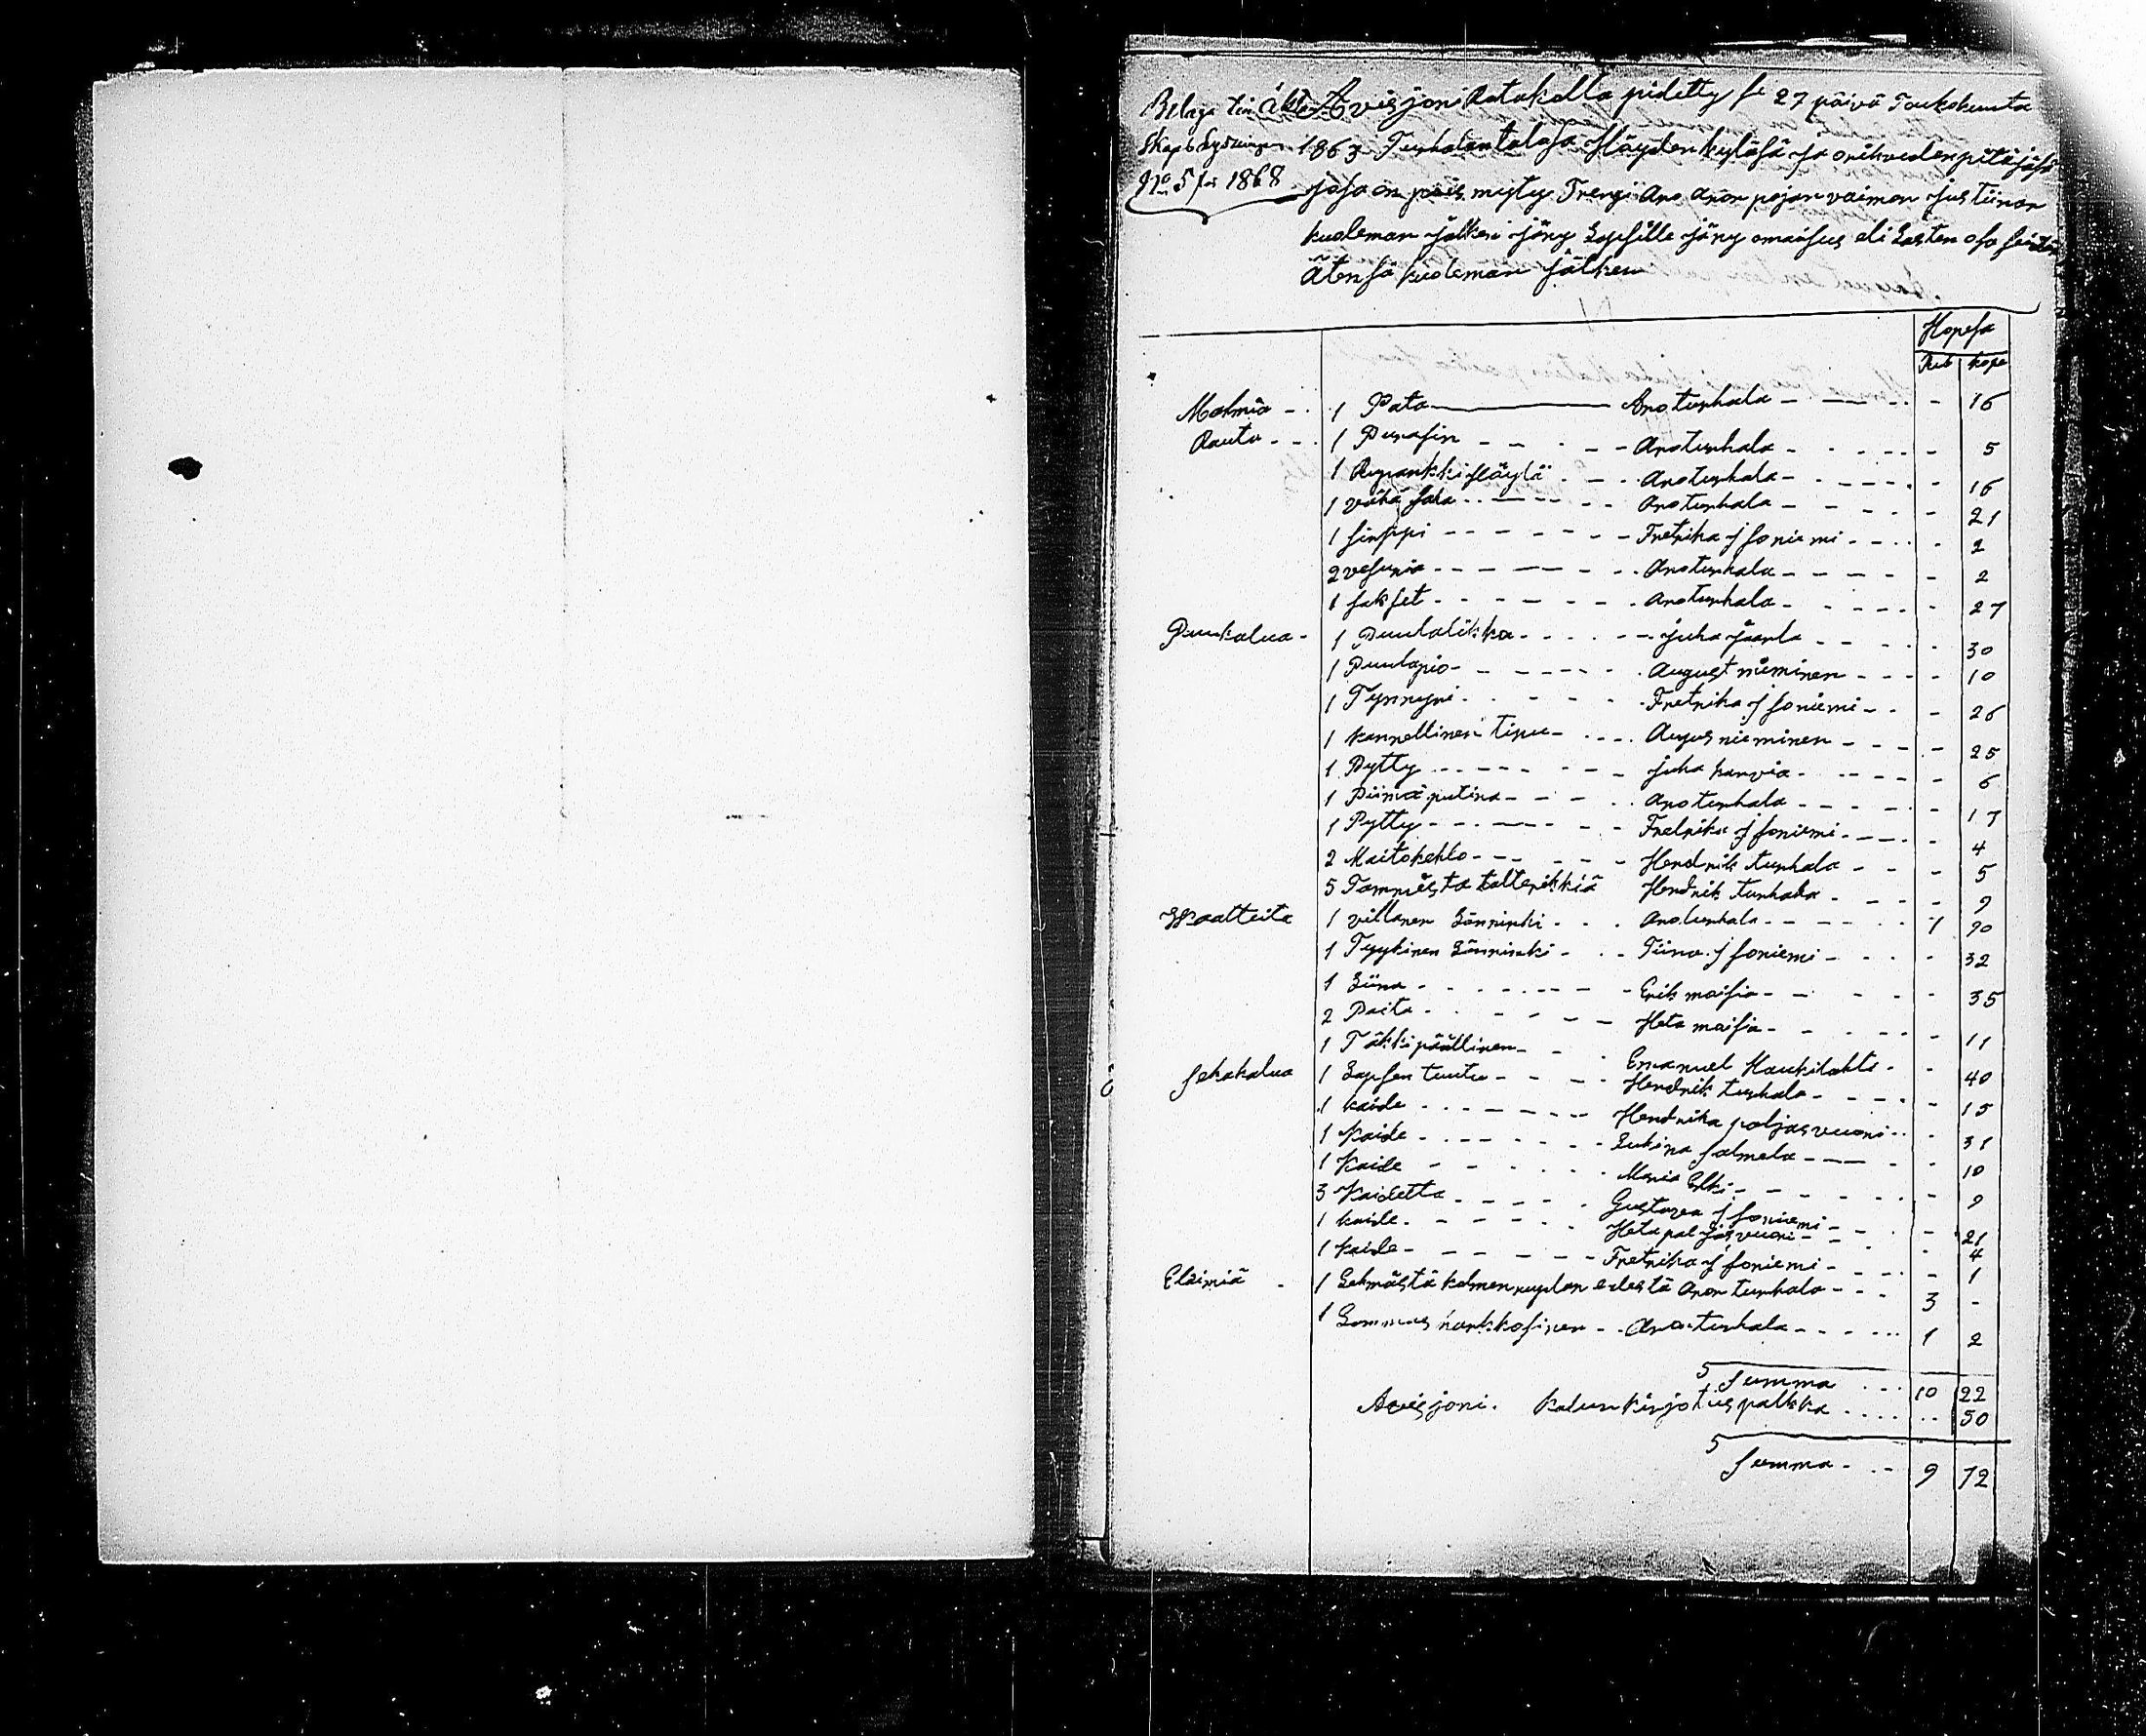 Bilaga till Äkten
skaps Lysningen
No 5 för 1868
Avisjoni Rotokolla pidetty se 27 päivä Toukokuuta
1863 Turhalantalosa Häyden kyläsä ja oriveden pitäjäsä
josa on poismyyty Trengi Aro Aron pojan vaimon Justiinan
kuoleman jälken jäny Lapsille jäny omaisus eli Lasten osa heidän
Ätensä kuoleman jälken
Hopesa
Rub kope
Malmia 1 Pata Aro turhala - 16
Rauta 1 Purasin Aroturhala - 5
1 Aroturhala - 16
1 vähä saha Aroturhala - 21
1 sirppi Fretrika jsoniemi - 2
2 vesuria Aroturhala - 2
1 sakset Aroturhala - 27
Puukalua 1 Puulalikka juha jaarla - 30
1 Puulapio August nieminen - 10
1 Tynnyri Fretrika jsoniemi - 26
1 kannellinen tinu Augus nieminen - 25
1 Pytty juha harvia - 6
1 Piimä putina Aroturhala - 17
1 Pytty Fretrika jsoniemi - 4
2 Maitokehlo Hendrik turhala - 5
5 Tammista talterikkiä Hendrik turhala - 9
Waatteita 1 villanen Lönninki Aroturhala 1 90
1 Tyykinen Lönninki Tiina jsoniemi - 32
1 Liina Erik maisia - 35
2 Paita Heta maisia - 11
1 Täkki päällinen Emanuel Haukilahti - 40
sekakalua 1 Lapsen tuutu Hendrik turhala - 15
1 kaide Hendrika paljasvuori - 31
1 Kaide salmela - 10
1 Kaide Maria Erki - 9
3 Kaidetta Gustava jsoniemi - 21
1 kaide Heta paljasvuori - 4
1 kaide Fretrika jsoniemi - 1
Eläimiä 1 Lehmästä kolmen ruplan edestä Aron turhala 3 -
1 Lammas Aroturhala 1 2
Summa 10 22
Avisjoni. kalun kirjotus palkka 50
Summa 9 72